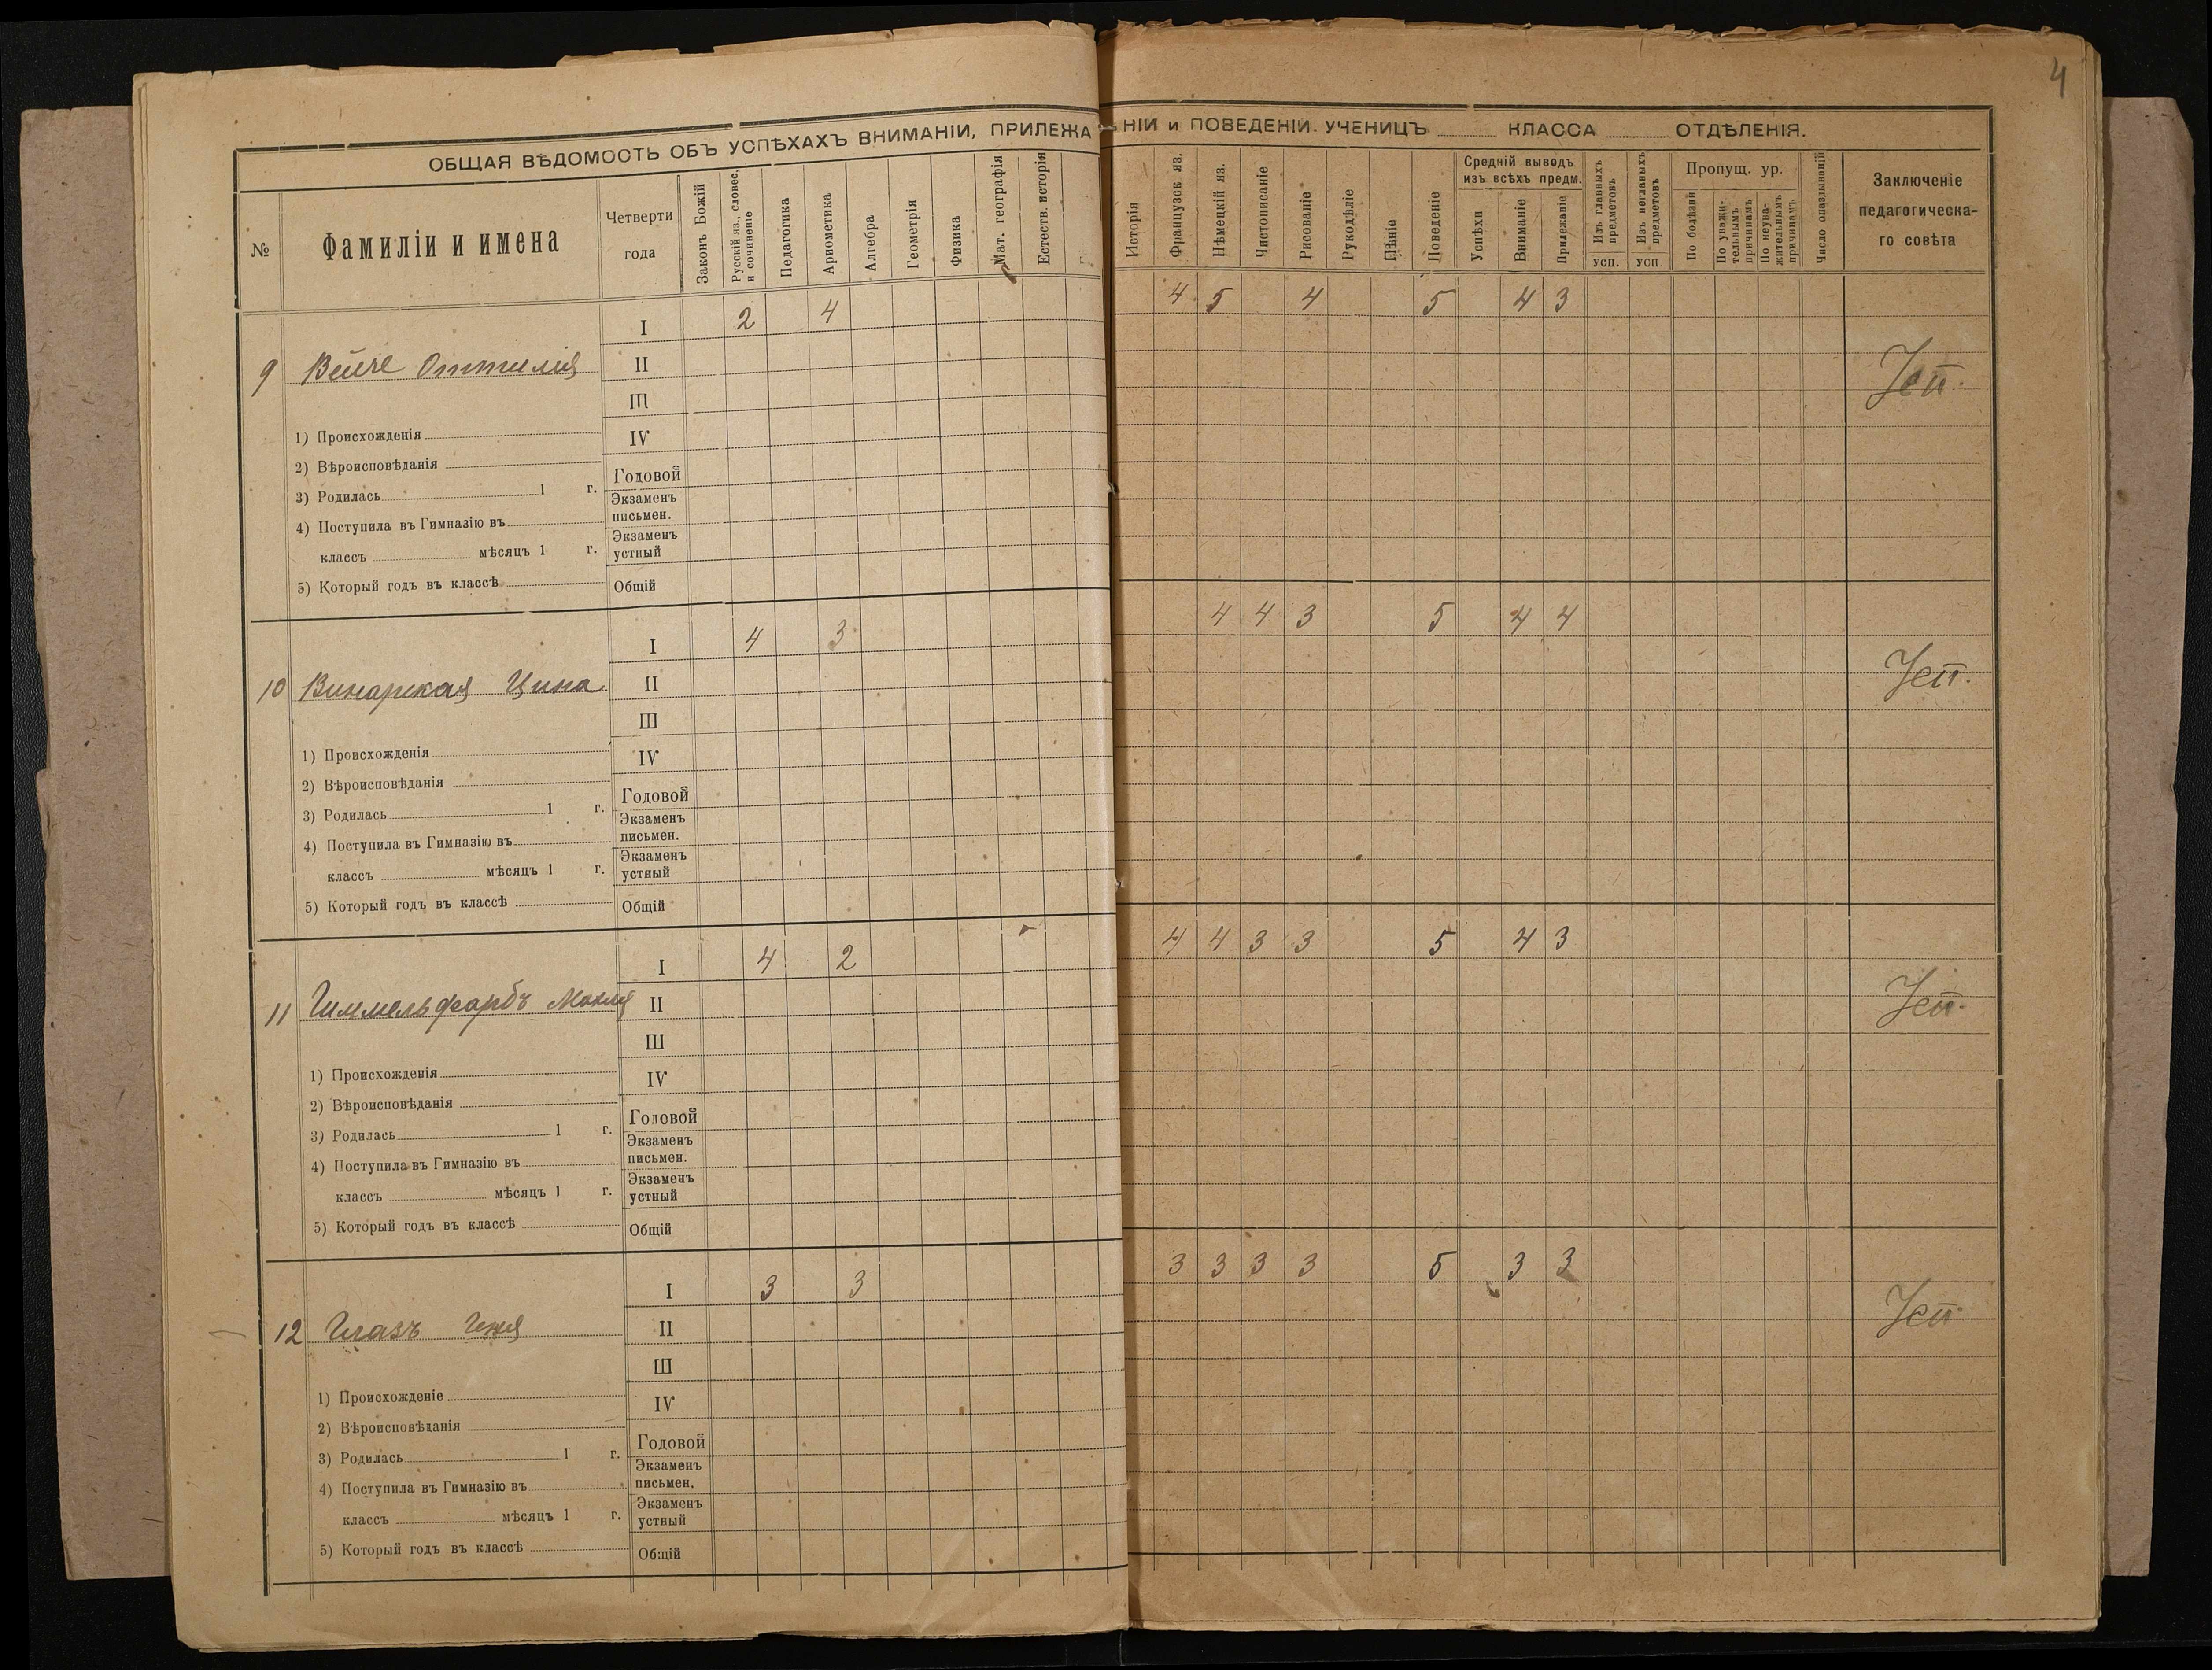 4
ОБЩАЯ ВѢДОМОСТЬ ОБЪ УСПѢХАХЪ ВНИМАНІИ, ПРИЛЕЖА НІИ и ПОВЕДЕНІИ. УЧЕНИЦЪ КЛАССА ОТДѢЛЕНІЯ.
№
Фамиліи и имена
Четверти года
Законъ Божій
Русскій яз., словес. и сочиненіе
Педагогика
Ариѳметика
Алгебра
Геометрія
Физика
Мат. географія
Естеств. исторія
Исторія
Французск яз.
Нѣмецкій яз.
Чистописаніе
Рисованіе
Рукодѣліе
Пѣніе
Поведеніе
Средній выводъ изъ всѣхъ предм.
Успѣхи
Вниманіе
Прилежаніе
Изъ главныхъ предметовъ
усп.
Изъ неглавныхъ предметовъ
усп
Пропущ. ур.
По болѣзни
По уважительнымъ причинамъ
По неуважительнымъ причинамъ
Число опаздываній
Заключеніе педагогическа-го совѣта
I 2 4 4 5 4 5 4 3
9 Вейче Оттилія II Усп.
III
1) Происхожденія IV
2) Вѣроисповѣданія Годовой
3) Родилась 1 г. Экзаменъ письмен.
4) Поступила въ Гимназію въ
классъ мѣсяцъ 1 г. Экзаменъ устный
5) Который годъ въ классѣ Общій
I 4 3 4 4 3 5 4 4
10 Винарская Цина II Усп.
III
1) Происхожденія IV
2) Вѣроисповѣданія Годовой
3) Родилась 1 г. Экзаменъ письмен.
4) Поступила въ Гимназію въ
классъ мѣсяцъ 1 г. Экзаменъ устный
5) Который годъ въ классѣ Общій
I 4 2 4 4 3 3 5 4 3
11 Гиммельфарбъ II Усп.
III
1) Происхожденія IV
2) Вѣроисповѣданія Годовой
3) Родилась 1 г. Экзаменъ письмен.
4) Поступила въ Гимназію въ
классъ мѣсяцъ 1 г. Экзаменъ устный
5) Который годъ въ классѣ Общій
I 3 3 3 3 3 3 5 3 3
12 Глазъ II Усп.
III
1) Происхожденіе IV
2) Вѣроисповѣданія Годовой
3) Родилась 1 г. Экзаменъ письмен.
4) Поступила въ Гимназію въ
классъ мѣсяцъ 1 г. Экзаменъ устный
5) Который годъ въ классѣ Общій